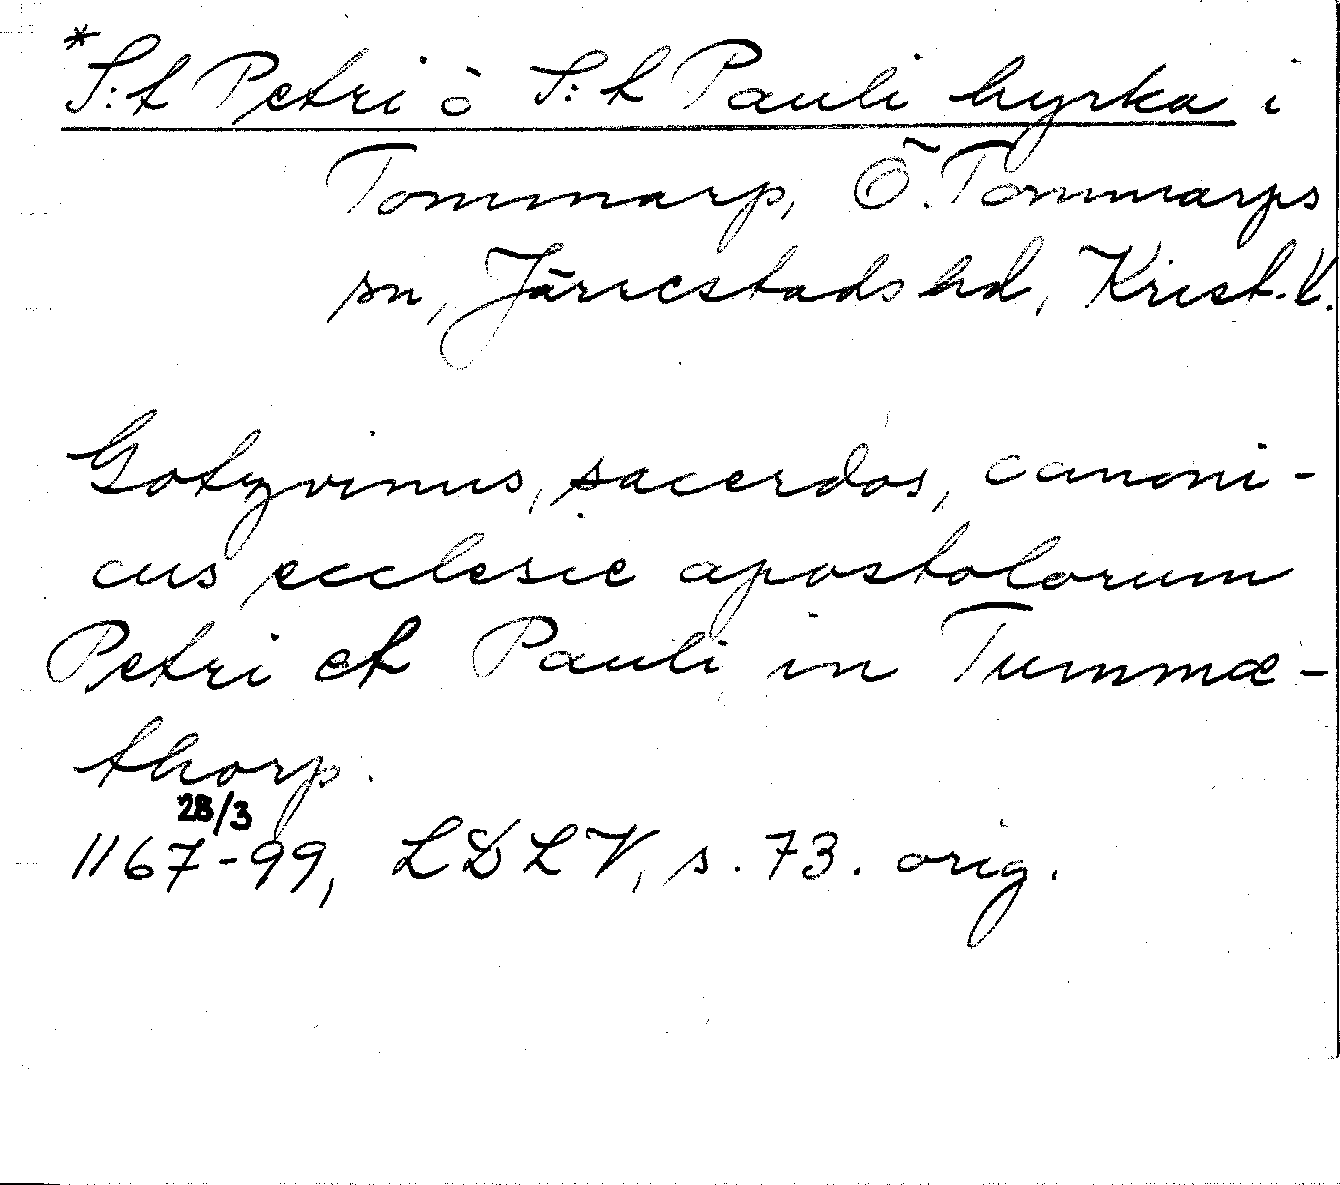 *S:t Petri o S:t Pauli kyrka i
Tommarp, Ö. Tommarps
sn, Järrestads hd, Krist. l.
Gotzvinus, sacerdos, canoni-
cus ecclesie apostolorum
Petri et Pauli in Tummæ-
thorp.
28/3
1167-99, LDLV, s. 73. orig.